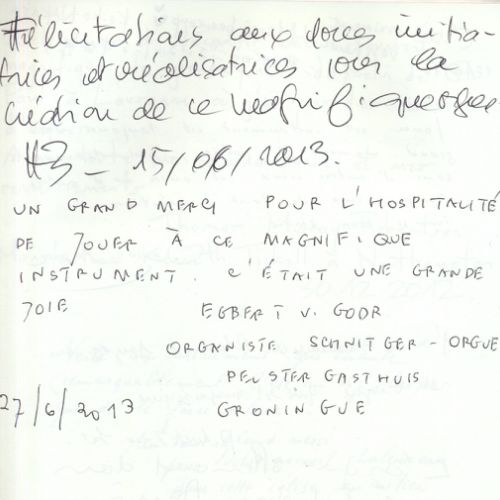 Félicitations aux forces initia-
trices et réalisatrices pour la
création de ce magnifique orgue.
HB - 15/06/2013.
UN GRAND MERCI POUR L'HOSPITALITÉ
DE JOUER À CE MAGNIFIQUE
INSTRUMENT. C'ÉTAIT UNE GRANDE
JOIE EGBERT V. GOOR
ORGANISTE SCHNITGER - ORGUE
PELSTER GASTHUIS
27/6/2013 GRONINGUE